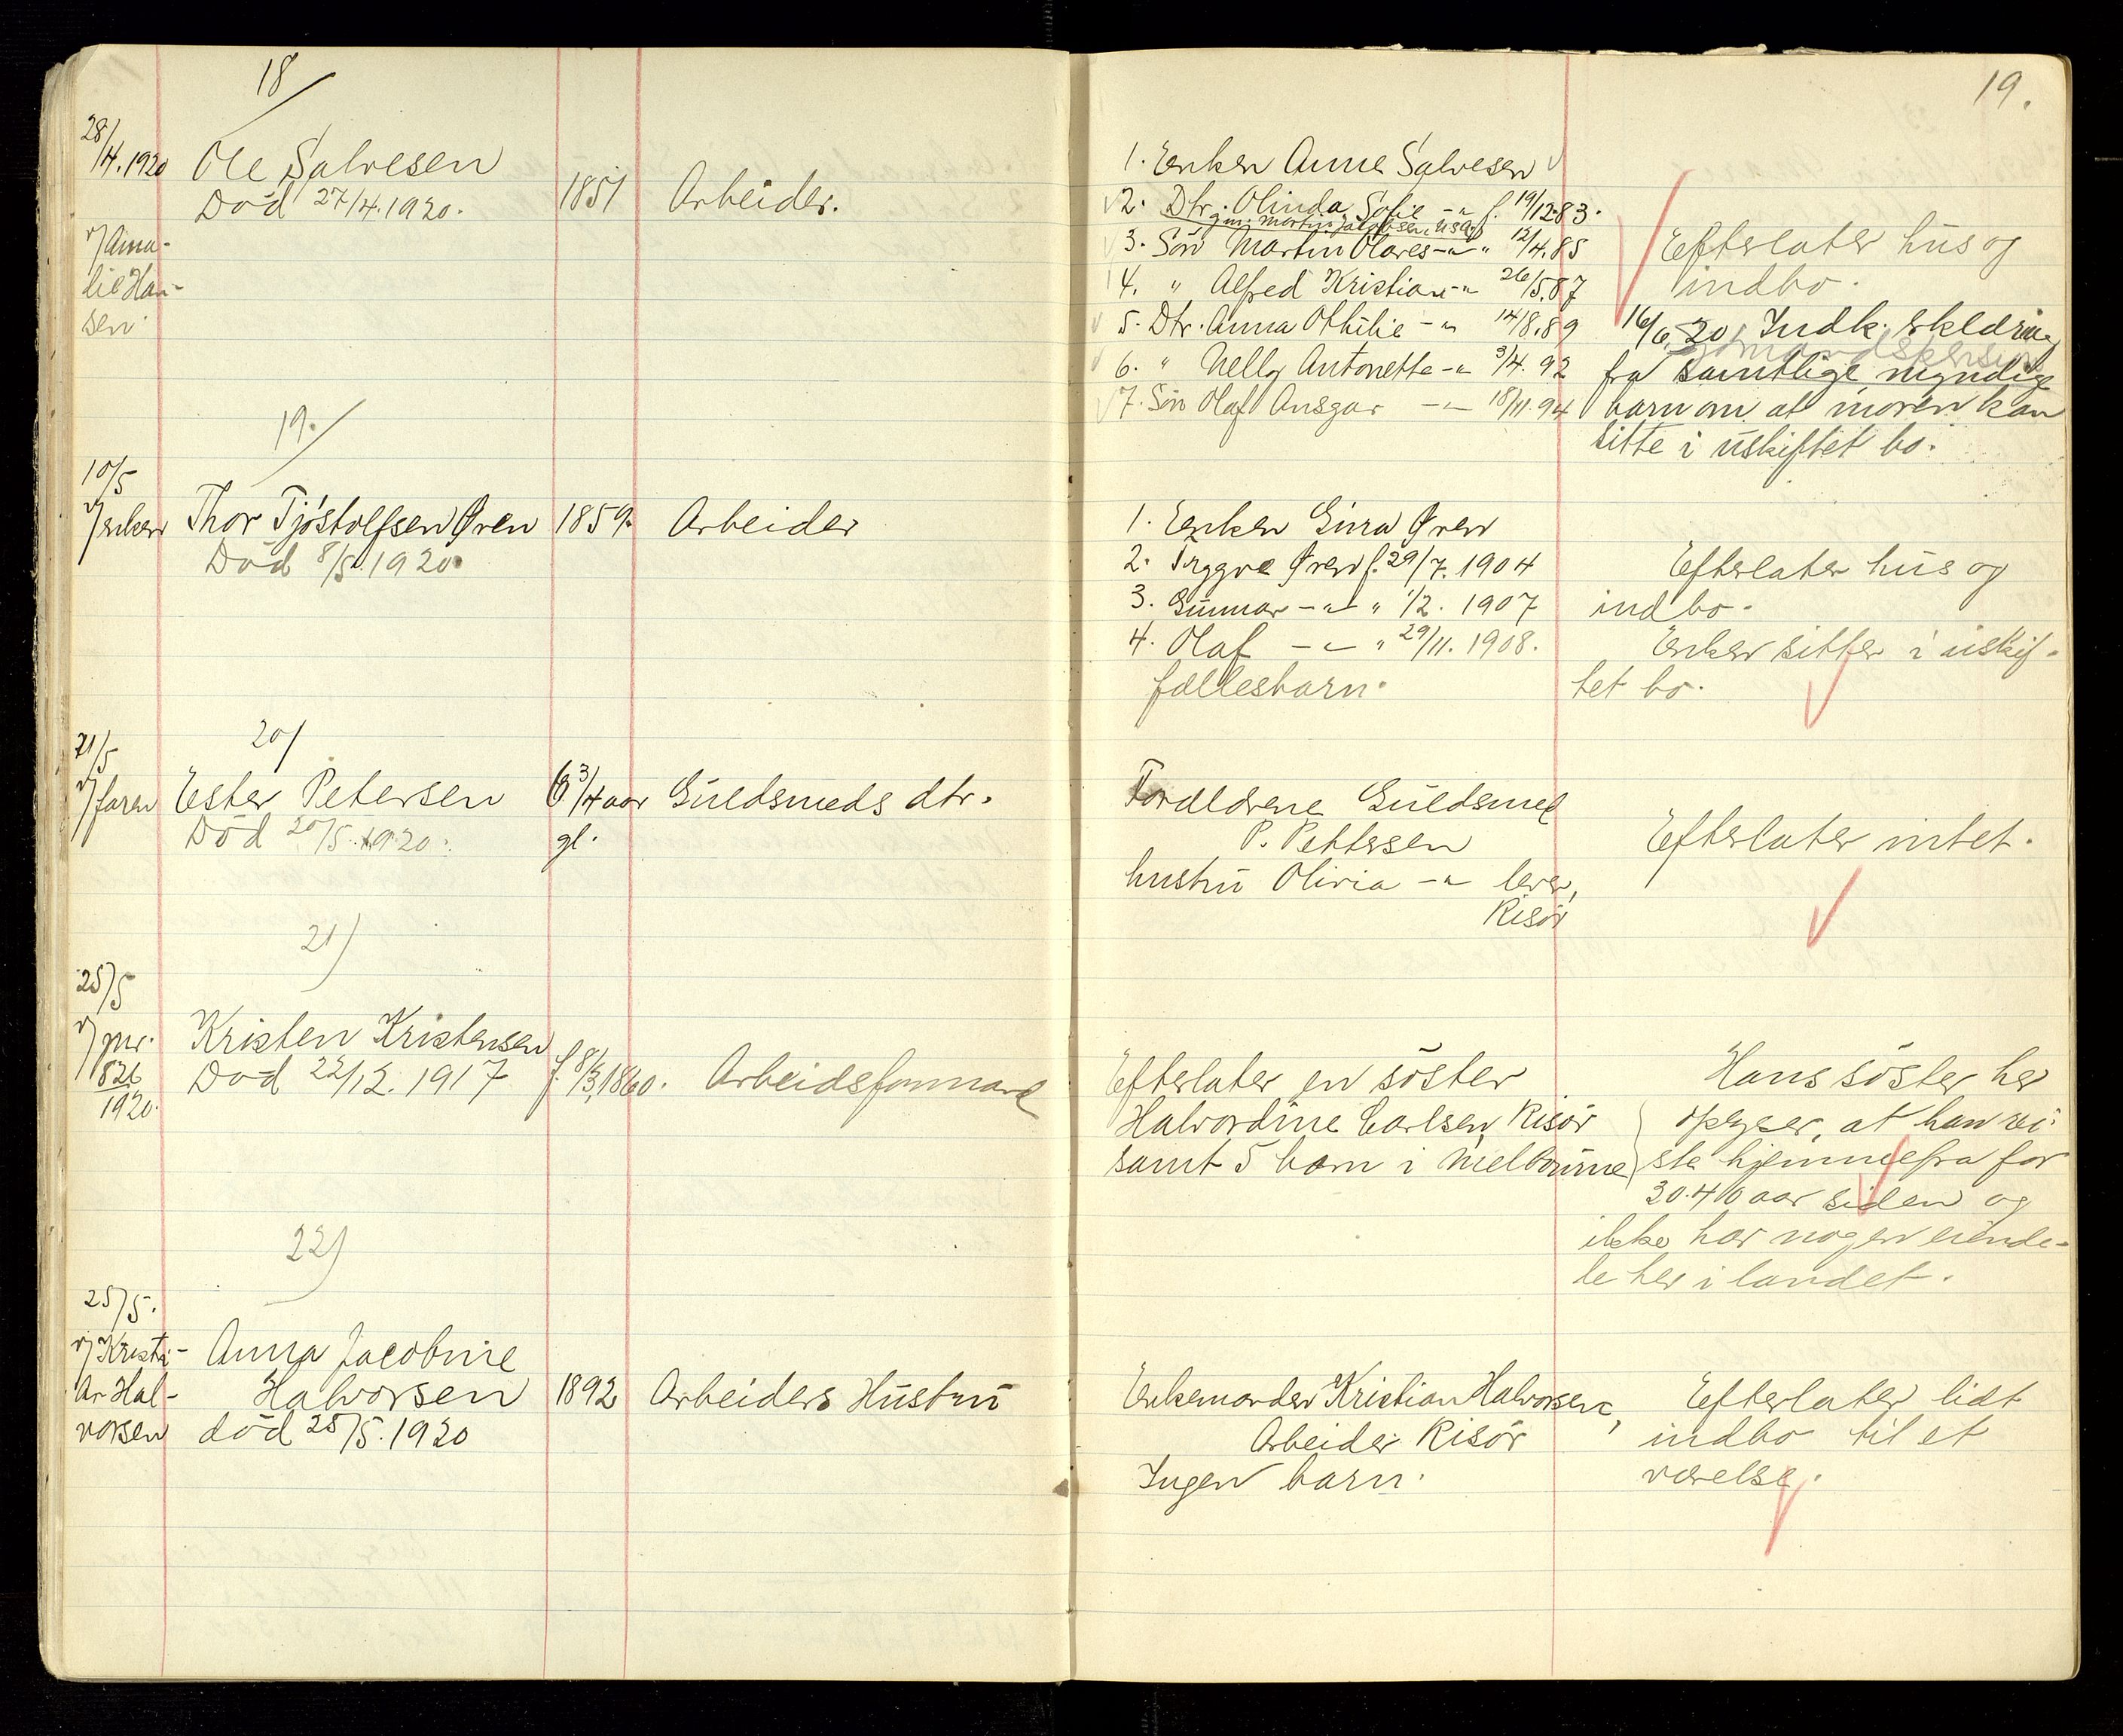 19.
18/
28/4.1920
Ole Salvesen
Död 27/4.1920.
1851
Arbeider.
v/Ama-
lie Han-
sen.
1. Enken Anne Salvesen
2. Dtr. Olinda Sofie -"- f. 19/12.83.
gm. Martin Jakobsen, U.S.A.
3. Sön Martin Olaves -"- " 12/4.85
4. " Alfred Kristian -"- 26/5.87
5. Dtr. Anna Othilie -"- 14/8.89
6. " Nelly Antonette -"- 3/4.92
7. Sön Olaf Ansgar -"- 18/11.94
Efterlater hus og
indbo.
16/6.20. Indk.
fra samtlige myndige
barn om at moren kan
sitte i uskiftet bo.
19./
10/5
v/enken
Thor Tjöstolfsen Øren
Död 8/5.1920.
1859.
Arbeider
1. Enken Gina Øren
2. Trygve Øren f. 29/7.1904
3. Gunnar -"- " 1/2.1907
4. Olaf -"- " 29/11.1908.
fællesbarn.
Efterlater hus og
indbo.
Enken sitter i uskif-
tet bo.
20/
21/5
v/faren
Ester Petersen
Död 20/5.1920.
6 3/4 aar
gl.
Guldsmeds dtr.
Forældrene Guldsmed
P. Pettersen
hustru Olivia -"- lever,
Risör
Efterlater intet.
21)
25/5
v/pnr.
826
1920.
Kristen Kristensen
Död 22/12.1917
f. 8/3.1860.
Arbeidsformand
Efterlater en söster
Halvordine Carlsen, Risör
samt 5 barn i Melbourne
Hans söster her
opgyser, at han rei-
ste hjemmefra for
30-40 aar siden og
ikke har nogen eiende-
le her i landet.
22)
25/5.
v/Kristi-
an Hal-
vorsen
Anna Jacobine
Halvorsen
död 25/5.1920
1892
Arbeiders Hustru
Enkemanden Kristian Halvorsen,
Arbeider Risör
Ingen barn.
Efterlater lidt
indbo til et
værelse.